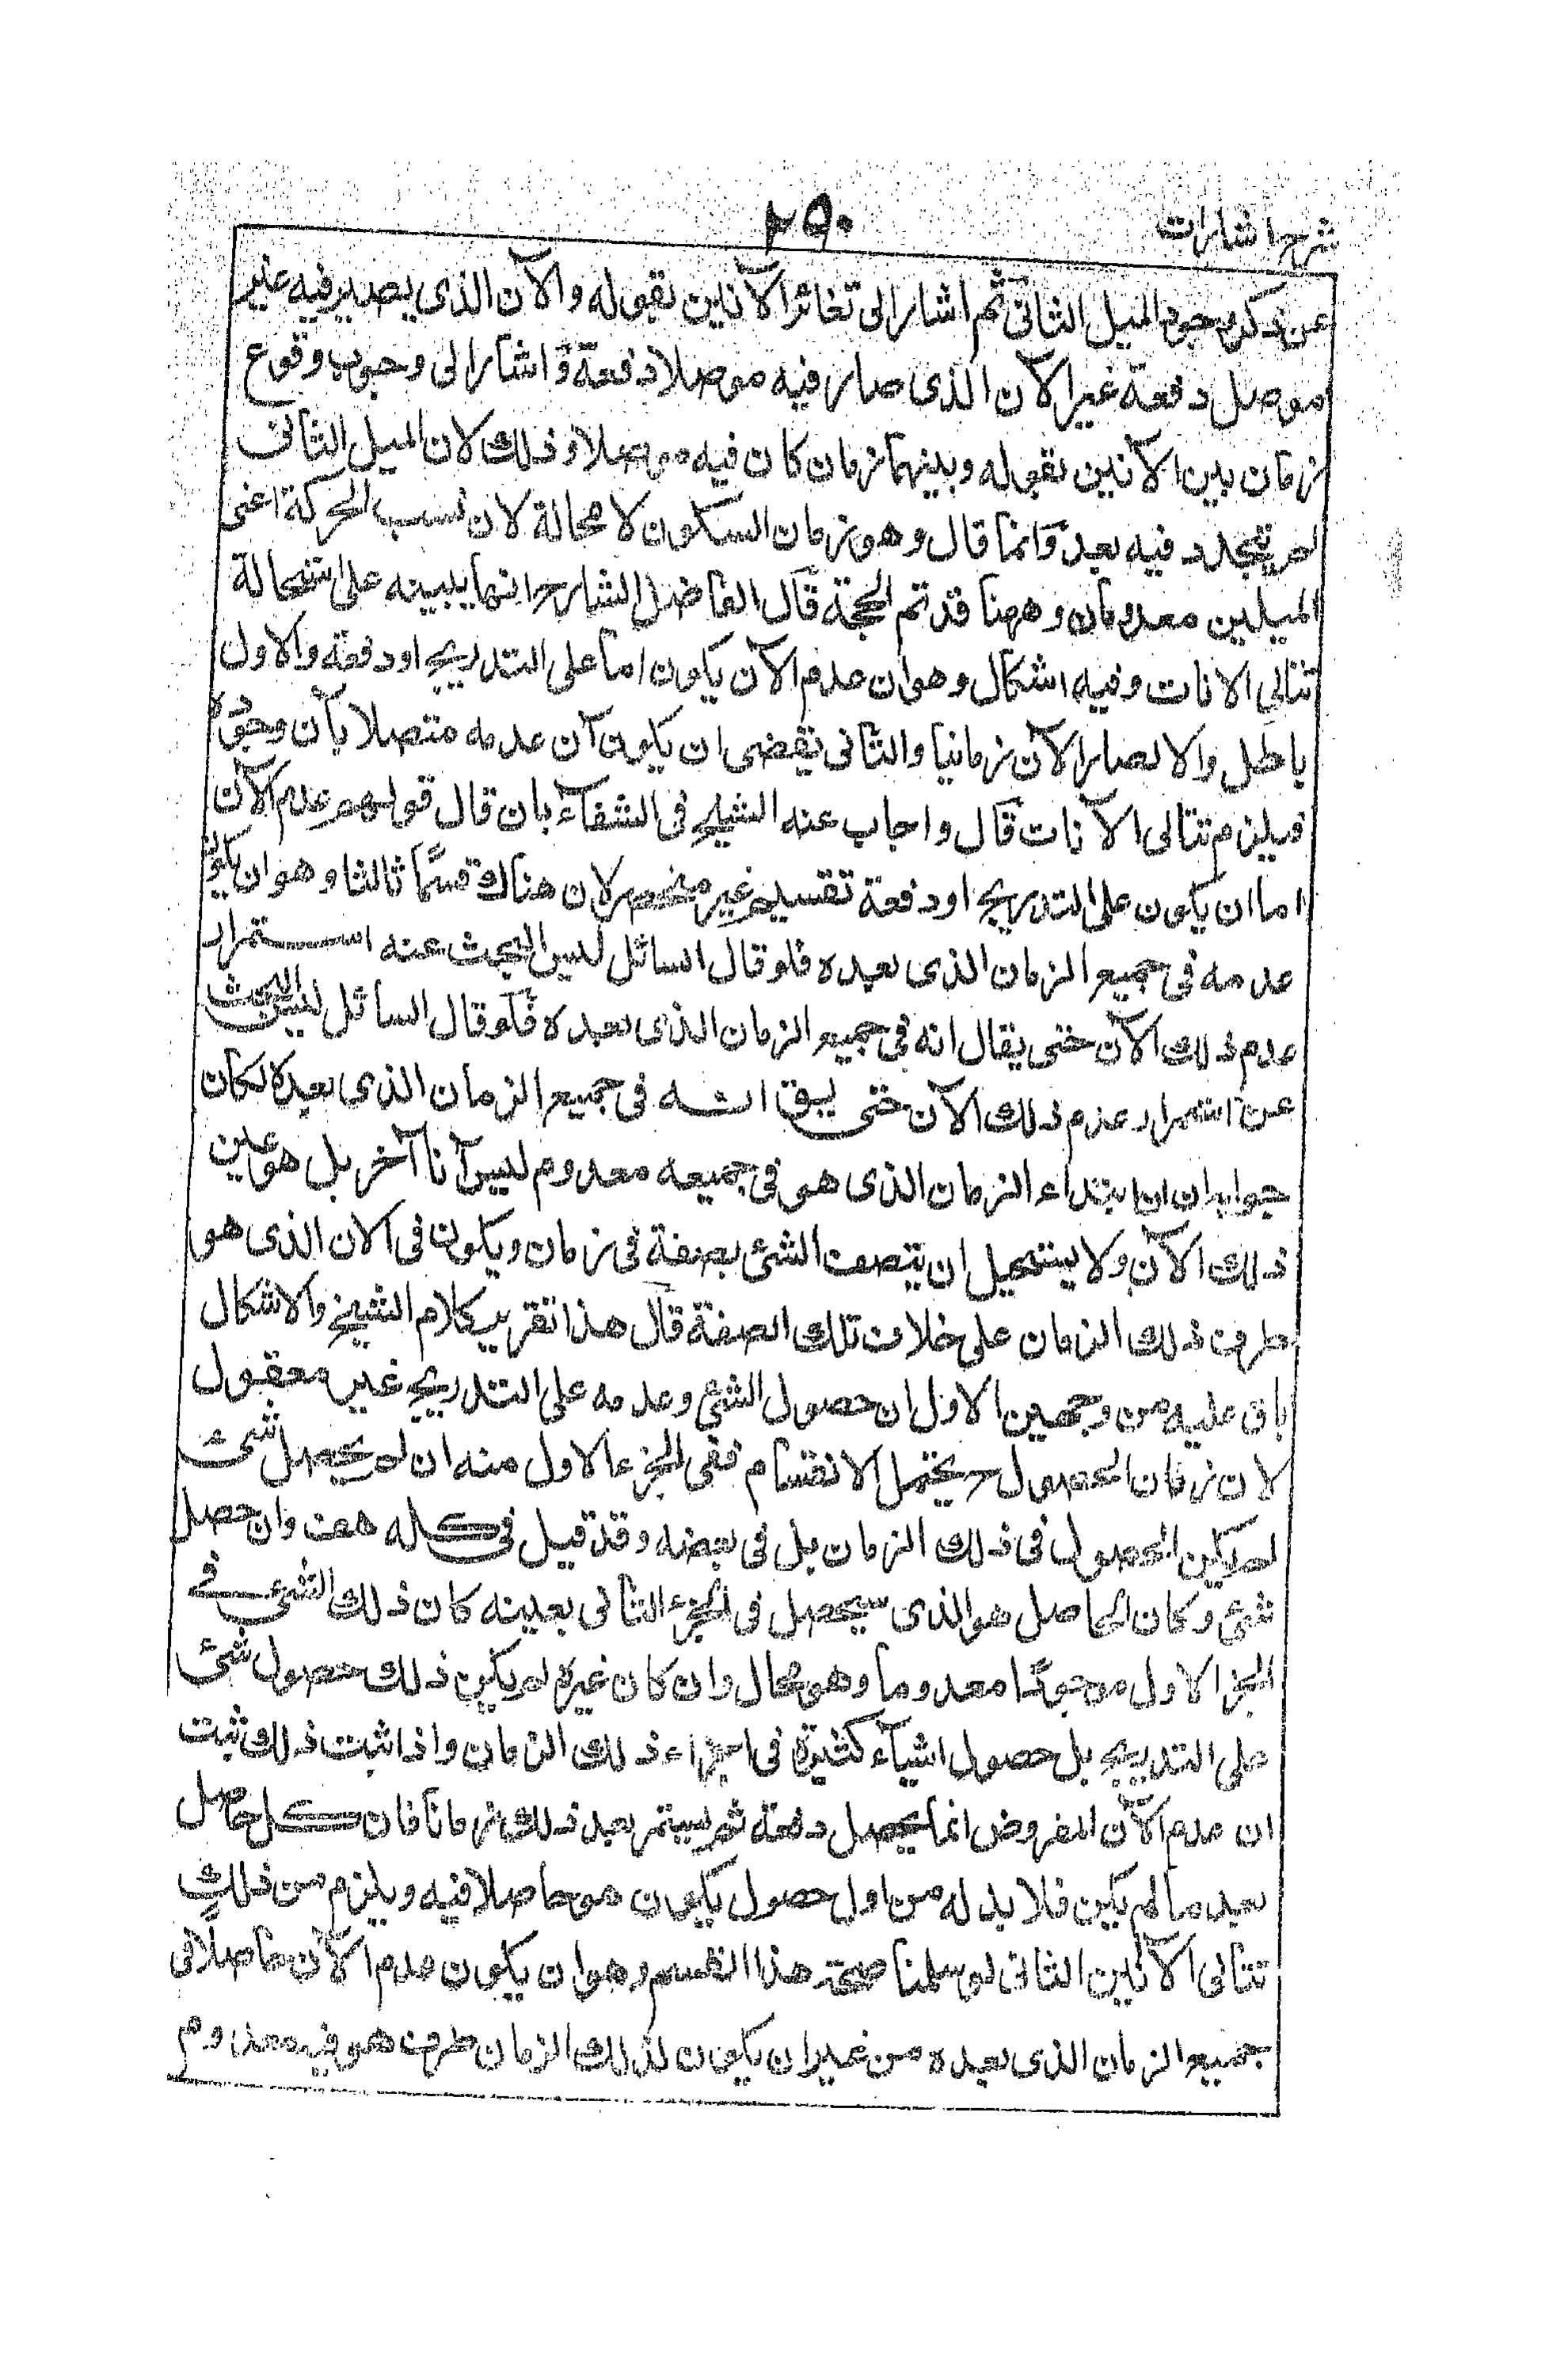 شرح اشارات
٢٥٠
عن ذكر وجود الميل الثانى ثم اشار الى تغائر الآنين بقوله والآن الذى يصير فيه غير
موصل دفعة غير الآن الذى صار فيه موصلا دفعة واشار الى وجوب وقوع
زمان بين الآنين بقوله وبينهما زمان كان فيه موصلا وذلك لان الميل الثانى
لم يتجدد فيه بعد وانما قال وهو زمان السكون لا محالة لان سبب الحركة اعنى
الميلين معدومان وههنا قد تم الحجة قال الفاضل الشارح انما يبينه على استحالة
تتالى الانات وفيه اشكال وهو ان عدم الآن يكون اما على التدريج او دفعة والاول
باطل والا لصار الآن زمانيا والثانى يقضى ان يكون آن عدمه متصلا بآن وجوده
فيلزم تتالى الآنات قال واجاب عنه الشيخ فى الشفاء بان قال قولهم عدم الآن
اما ان يكون على التدريج او دفعة تقسيم غير منحصر لان هناك قسما ثالثا وهو ان يكون
عدمه فى جميع الزمان الذى بعده فلو قال السائل ليس البحث عنه استمرار
عدم ذلك الآن حتى يقال انه فى جميع الزمان الذى بعده فلو قال السائل ليس البحث
عن استمرار عدم ذلك الآن حتى يبق انه فى جميع الزمان الذى بعده لكان
جوابه ان ابتداء الزمان الذى هو فى جميعه معدوم ليس آنا آخر بل هو عين
ذلك الآن ولا يستحيل ان يتصف الشئ بصفة فى زمان ويكون فى الان الذى هو
طرف ذلك الزمان على خلاف تلك الصفة قال هذا تقرير كلام الشيخ والاشكال
باق عليه من وجهين الاول ان حصول الشئ وعدمه على التدريج غير معقول
لان زمان الحصول يحتمل الانقسام ففى الجزء الاول منه ان لم يحصل شئ
لم يكن الحصول فى ذلك الزمان بل فى بعضه وقد قيل فى كله هف وان حصل
شئ وكان الحاصل هو الذى سيحصل فى الجزء الثانى بعينه كان ذلك الشئ فى
الجزا الاول موجودا معدوما وهو محال وان كان غيره لم يكن ذلك حصول شئ
على التدريج بل حصول اشياء كثيرة فى اجزاء ذلك الزمان واذا ثبت ذلك ثبت
ان عدم الآن المفروض انما يحصل دفعة ثم يستمر بعد ذلك زمانا فان كل حاصل
بعد ما لم يكن فلا بد له من اول حصول يكون هو حاصلا فيه ويلزم من ذلك
تتالى الآنين الثانى لو سلمنا صحة هذا القسم وهو ان يكون عدم الآن حاصلا فى
جميع الزمان الذى بعده من غير ان يكون لذلك الزمان طرف هو فيه معدوم